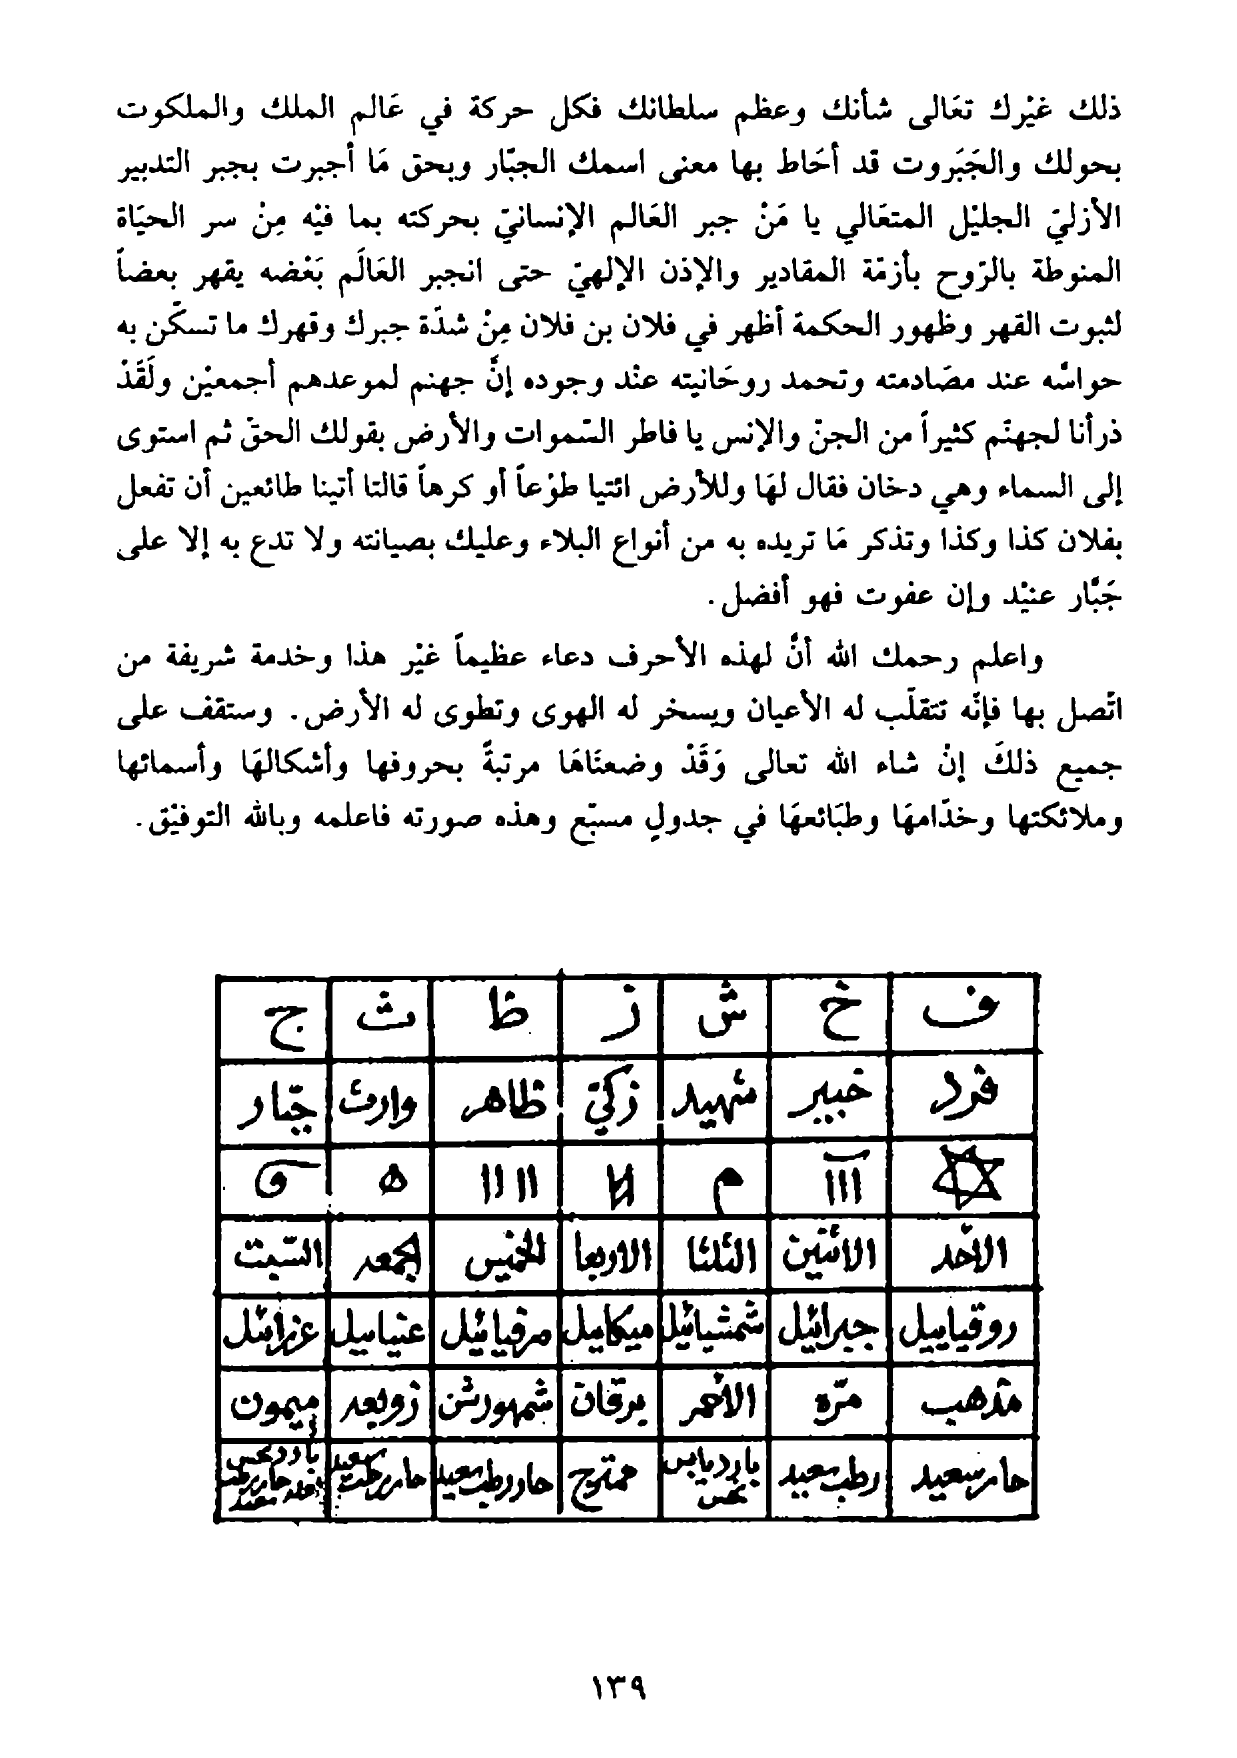 ذلك غيْرك تعَالى شأنك وعظم سلطانك فكل حركة في عَالم الملك والملكوت
بحولك والجَبَروت قد أحَاط بها معنى اسمك الجبّار وبحق مَا أجبرت بجبر التدبير
الأزليّ الجليْل المتعَالي يا مَنْ جبر العَالم الإنسانيّ بحركته بما فيْه مِنْ سر الحيَاة
المنوطة بالرّوح بأزمّة المقادير والإذن الإلهيّ حتى انجبر العَالَم بَعْضه يقهر بعضاً
لثبوت القهر وظهور الحكمة أظهر في فلان بن فلان مِنْ شدّة جبرك وقهرك ما تسكّن به
حواسّه عند مصَادمته وتحمد روحَانيته عنْد وجوده إنَّ جهنم لموعدهم أجمعيْن ولَقَدْ
ذرأنا لجهنّم كثيراً من الجنّ والإنس يا فاطر السّموات والأرض بقولك الحقّ ثم استوى
إلى السماء وهي دخان فقال لهَا وللأرض ائتيا طوْعاً أو كرهاً قالتا أتينا طائعين أن تفعل
بفلان كذا وكذا وتذكر مَا تريده به من أنواع البلاء وعليك بصيانته ولا تدع به إلا على
جَبَّار عنيْد وإن عفوت فهو أفضل.
واعلم رحمك الله أنَّ لهذه الأحرف دعاء عظيماً غيْر هذا وخدمة شريفة من
اتّصل بها فإنّه تتقلّب له الأعيان ويسخر له الهوى وتطوى له الأرض. وستقف على
جميع ذلكَ إنْ شاء الله تعالى وَقَدْ وضعنَاهَا مرتبةً بحروفها وأشكالهَا وأسمائها
وملائكتها وخدّامهَا وطبَائعهَا في جدولِ مسبّع وهذه صورته فاعلمه وبالله التوفيْق.
ف خ ش ز ظ ث ج
فرد خبير شهيد زكيّ ظاهر وارث جبّار
الاحد الاثنين الثلثا الاربعا الخميس الجمعه السّبت
روقياييل جبرائيل شمشيائيل ميكاييل صرفيائيل عنياييل عزرائيل
مذهب مرّه الاحمر برقان شمهورش زوبعه ميمون
حار سعيد رطب سعيد بارد يابس نحس ممتزج حار رطب سعيد حار رطب سعيد
١٣٩